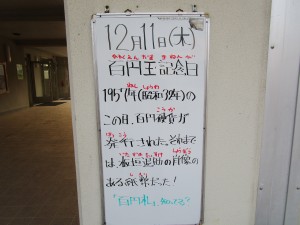 12月11日(木)
ひゃくえんだま きねんび
百円玉記念日
ねん しょうわ
1957年(昭和32年)の
こうか
この日、百円硬貨が
はっこう
発行された。それまで
いたがきたいすけ しょうぞう
は板垣退助の肖像の
しへい
ある紙幣だった!
「百円札」知ってる?